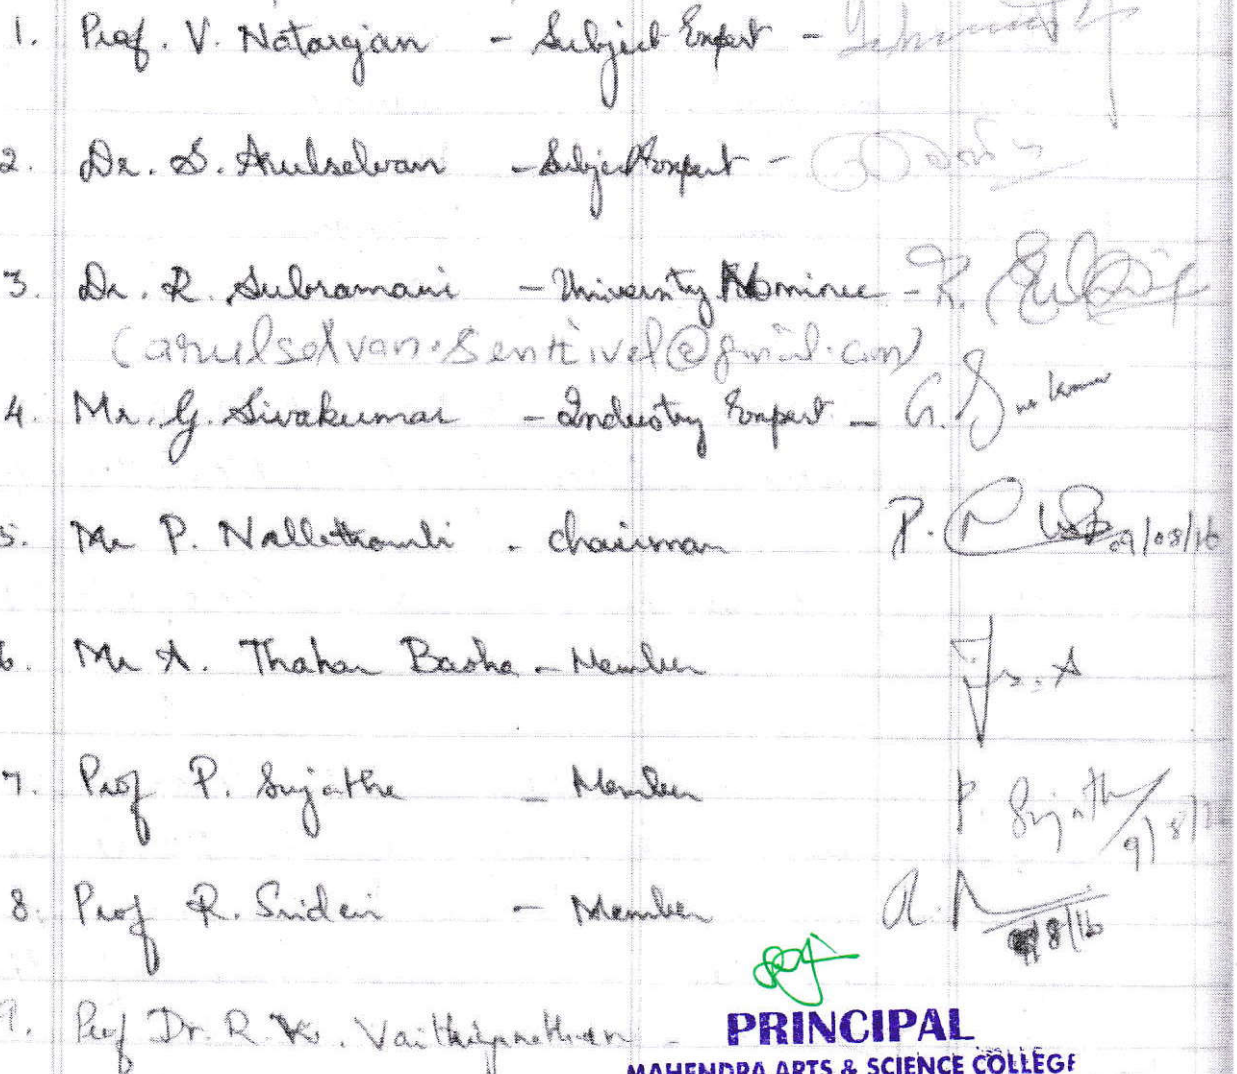 1. Prof. V. Natarajan - Subject Expert -
2. Dr. S. Arulselvan - Subject Expert -
3. Dr. R. Subramani - University Nominee - R.
(arulselvan.sentivel@gmail.com)
4. Mr. G. Sivakumar - Industry Expert - G. Sivakumar
5. Mr P. Nallathambi - chairman P. 09/08/16
6. Mr A. Thahar Basha - Member
7. Prof P. Sujatha - Member P. Sujatha 9/8/16
8. Prof R. Sridevi - Member R. 9/8/16
9. Prof Dr. R. K. Vaithiyanathan -
PRINCIPAL
MAHENDRA ARTS & SCIENCE COLLEGE